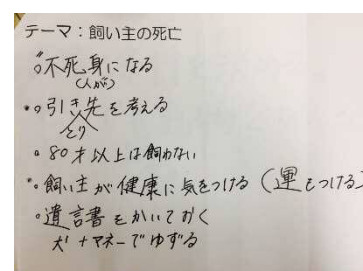 テーマ：飼い主の死亡
○不死身になる
(人が)
○引き先を考える
とり
○80才以上は飼わない
○飼い主が健康に気をつける(運もつける)
○遺言書をかいておく
犬+マネーでゆずる